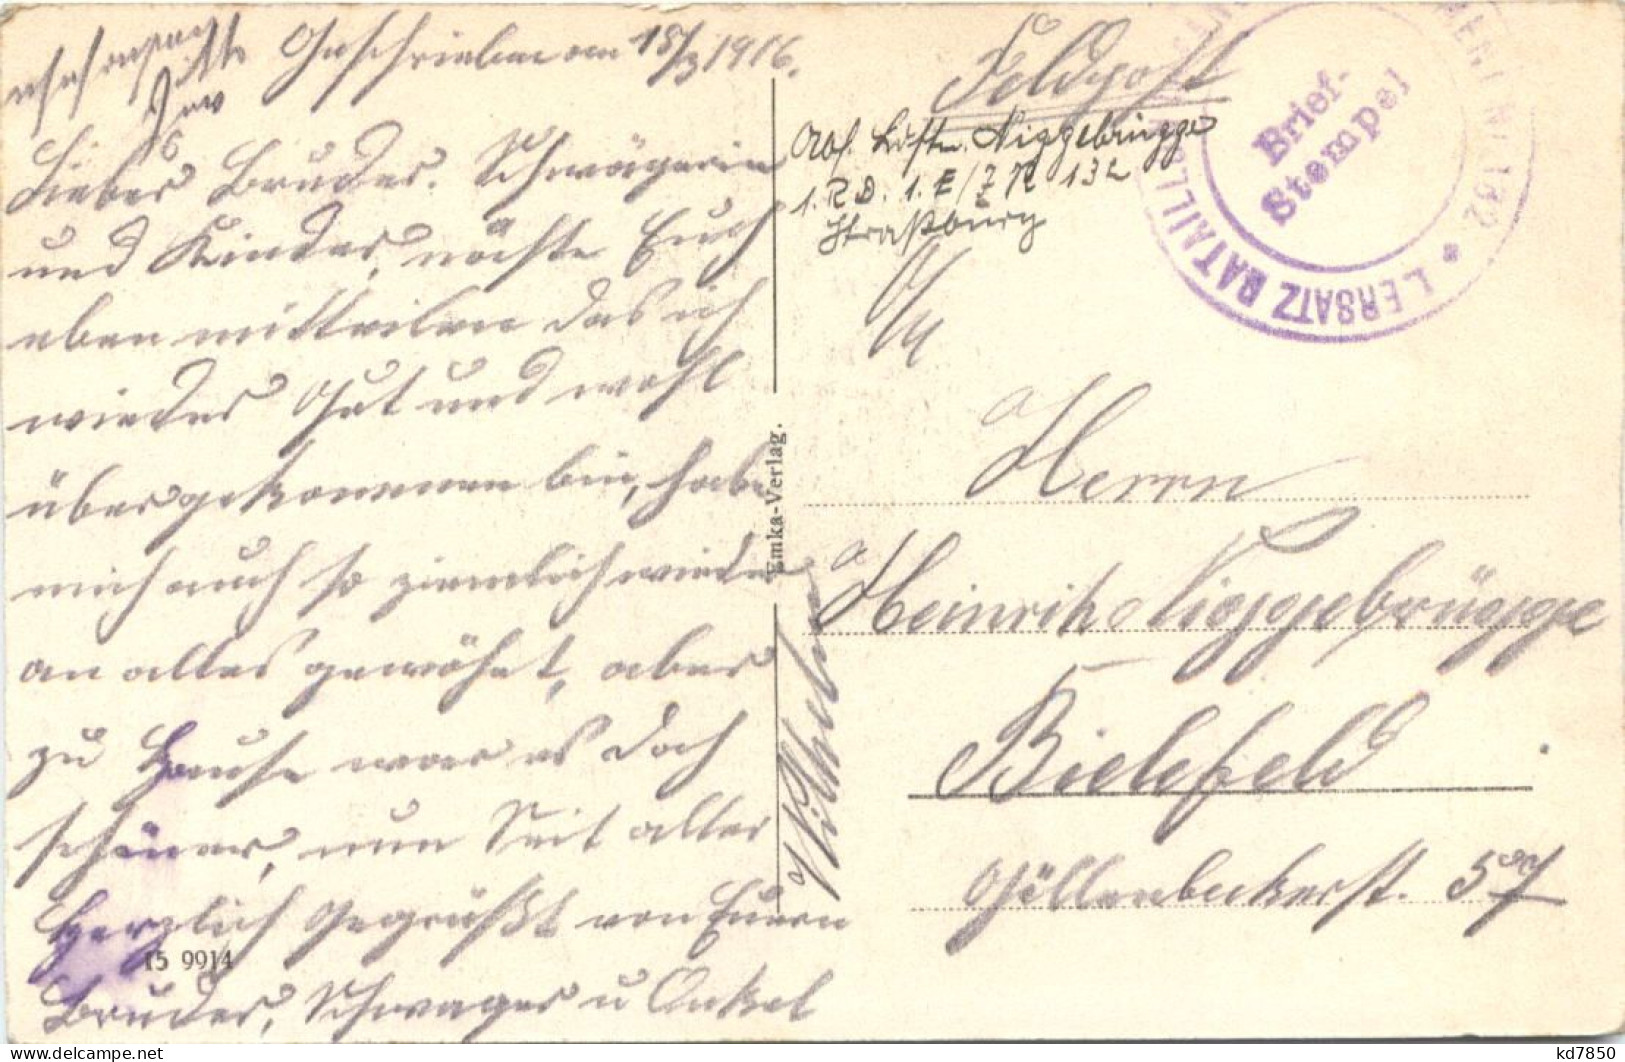 Geschrieben am 18/3 1916.
Lieber Bruder. Schwägerin
und Kinder, möchte Euch
eben mitteilen das ich
wieder Gut und wohl
übergekommen bin, habe
mich auch so ziemlich wieder
an alles gewöhnt, aber
zu Hause war es doch
schöner, nun Seit alle
Herzlich Gegrüßt von Euern
Bruder, Schwager u Onkel
Wilhelm
15 9914
Emka-Verlag.
Feldpost
Abs. Niggebrügge
1. R. D. 1. E/J R 132
Straßburg
Brief-
Stempel
1. ERSATZ BATAILLON 132
An
Herrn
Heinrich Niggebrügge
Bielefeld
Göllenbeckerst. 57
kd7850